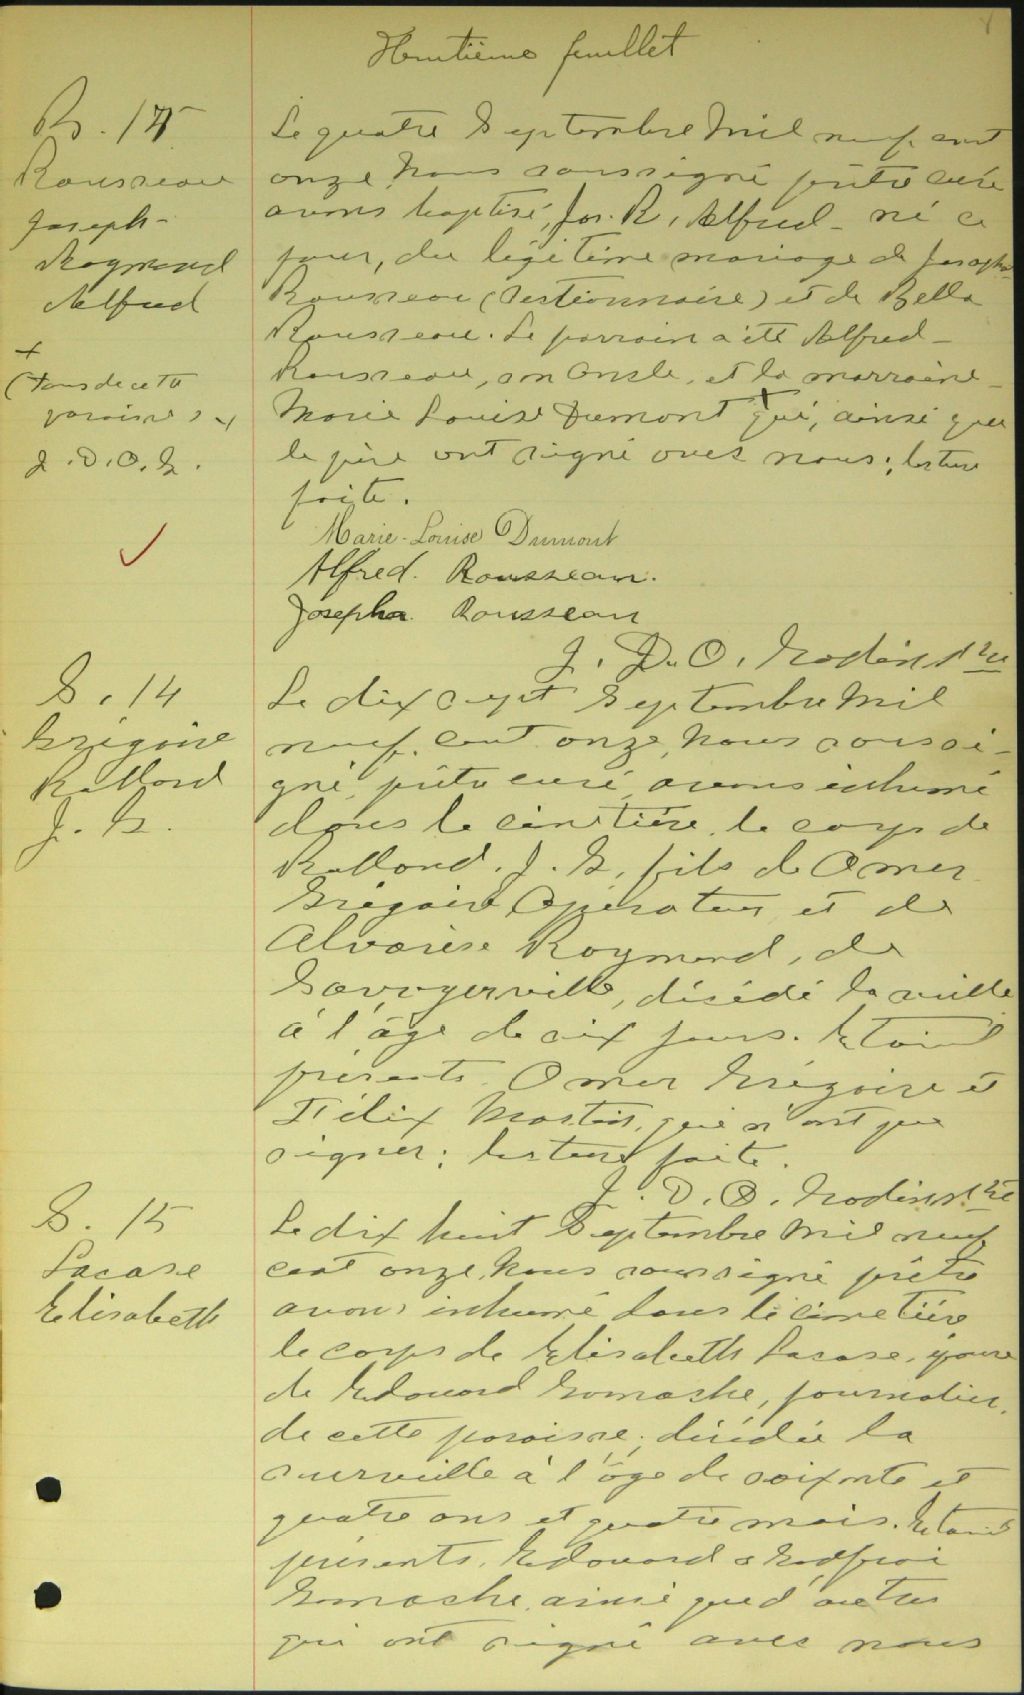 Huitième feuillet
B. 15
Rousseau
Joseph-
Raymond
Alfred
+
(tous de cette
paroisse) +
J. D. O. G.
Le quatre Septembre Mil neuf cent
onze, Nous soussigné prêtre curé
avons baptisé, Jos. R. Alfred - né ce
jour, du légitime mariage de Joseph
Rousseau (Sectionnaire) et de Bella
Rousseau. Le parrain a été Alfred-
Rousseau, son oncle, et la marraine-
Marie Louise Dumont + qui, ainsi que
le père ont signé avec nous; lecture
faite.
Marie-Louise Dumont
Alfred. Rousseau.
Joseph Rousseau
J. D. O. Godin ptre
S. 14
Grégoire
Rolland
J. G.
Le dix sept Septembre Mil
neuf cent onze, Nous soussi-
gné, prêtre curé, avons inhumé
dans le cimetière, le corps de
Rolland. J. G. fils de Omer
Grégoire, Opérateur, et de
Alvarèse Raymond, de
décédé la veille
à l'âge de six jours. Etaient
présents Omer Grégoire et
Félix Martin, qui n'ont pu
signer; lecture faite.
J. D. O. Godin ptre
S. 15
Lacasse
Elisabeth
Le dix huit Septembre Mil neuf
cent onze, Nous soussigné prêtre
avons inhumé dans le cimetière
le corps de Elisabeth Lacasse, épouse
de Edouard Gamache, journalier,
de cette paroisse, décédée la
surveille à l'âge de soixante et
quatre ans et quatre mois. Etaient
présents, Edouard & Godfroi
Gamache, ainsi que d'autres
qui ont signé avec nous